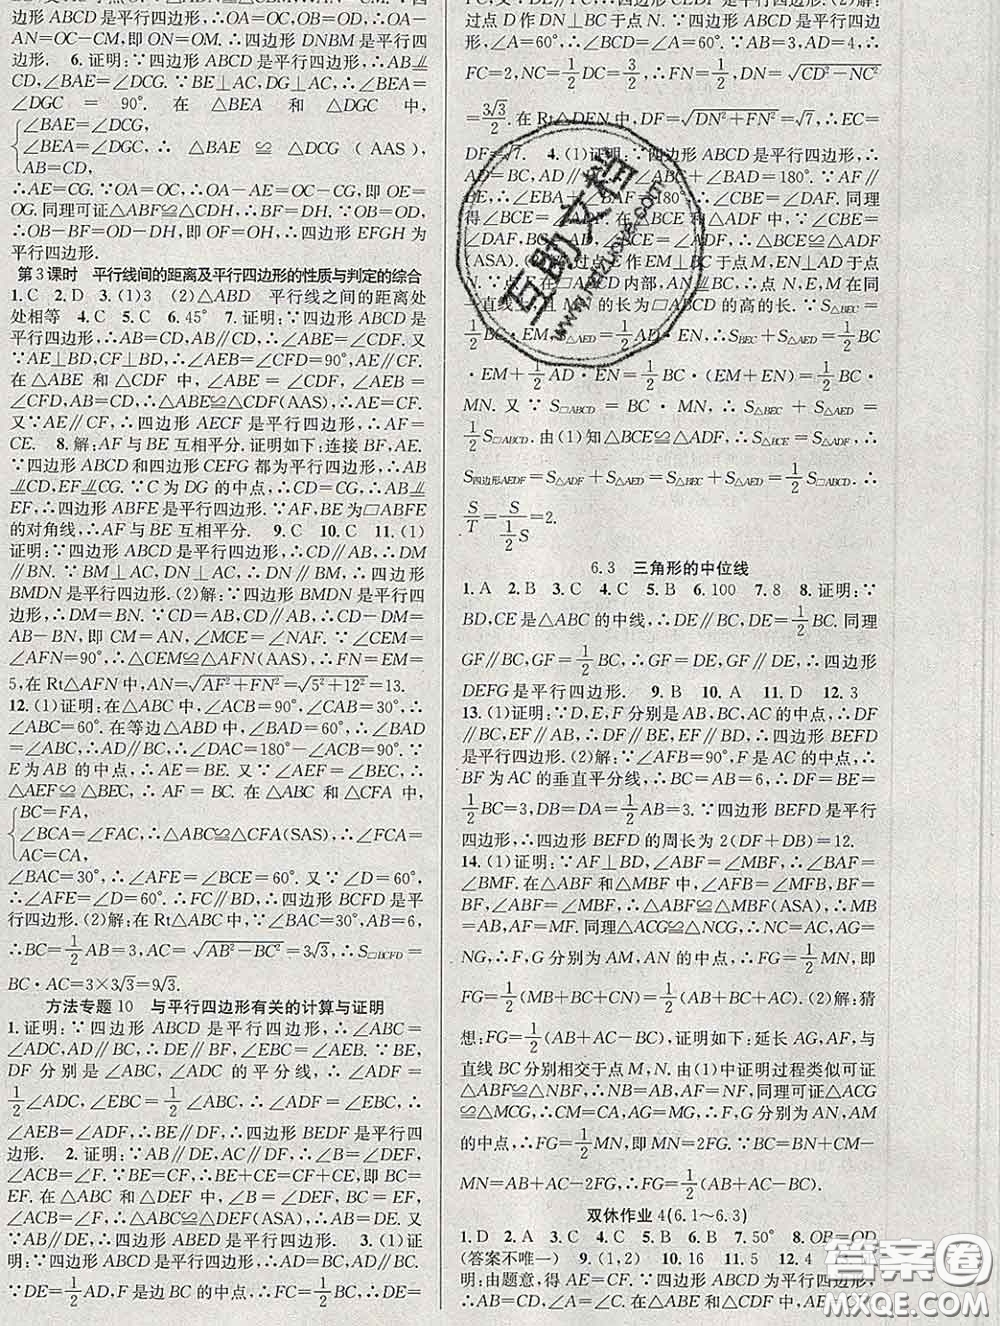 AN=OC-CM,即ON=OM.∴四边形DNBM是平行四
边形. 6.证明:∵四边形ABCD是平行四边形,∴AB⫫
CD,∴∠BAE=∠DCG.∵BE⊥AC,DG⊥AC,∴∠BEA=
∠DGC = 90°. 在 △BEA 和 △DGC 中,
∠BAE=∠DCG,
∠BEA=∠DGC, ∴ △BAE ≌ △DCG (AAS),
AB=CD.
∴AE=CG.∵OA=OC,∴OA-AE=OC-CG,即OE=
OG.同理可证△ABF≌△CDH,∴BF=DH.∵OB=OD,
∴OB-BF=OD-DH,即OF=OH,∴四边形EFGH为
平行四边形.
第3课时 平行线间的距离及平行四边形的性质与判定的综合
1.C 2.D 3.(1)3 (2)△ABD 平行线之间的距离处
处相等 4.C 5.C 6.45° 7.证明:∵四边形ABCD是
平行四边形,∴AB=CD,AB∥CD,∴∠ABE=∠CDF.
又∵AE⊥BD,CF⊥BD,∴∠AEB=∠CFD=90°,AE∥CF.
在△ABE和△CDF中,∠ABE=∠CDF,∠AEB=
∠CFD,AB=CD,∴△ABE≌△CDF(AAS),∴AE=CF.
又∵AE∥CF,∴四边形AECF是平行四边形,∴AF=
CE. 8.解:AF与BE互相平分.证明如下:连接BF,AE.
∵四边形ABCD和四边形CEFG都为平行四边形,∴AB
⫫CD,EF⫫CG.∵C为DG的中点,∴CD=CG,∴AB⫫
EF,∴四边形ABFE是平行四边形.∵AF,BE为□ABFE
的对角线,∴AF与BE互相平分. 9.C 10.C 11.(1)
证明:∵四边形ABCD是平行四边形,∴CD∥AB,∴DM
∥BN.∵BM⊥AC,DN⊥AC,∴DN∥BM,∴四边形
BMDN是平行四边形.(2)解:∵四边形BMDN是平行
四边形,∴DM=BN.∵CD=AB,CD∥AB,∴CD-DM=
AB-BN,即CM=AN,∠MCE=∠NAF.∵∠CEM=
∠AFN=90°,∴△CEM≌△AFN(AAS),∴FN=EM=
5,在Rt△AFN中,AN=√AF²+FN²=√5²+12²=13.
12.(1)证明:在△ABC中,∠ACB=90°,∠CAB=30°,∴
∠ABC=60°.在等边△ABD中,∠BAD=60°,∴∠BAD=
∠ABC=60°,∴∠DAC=180°-∠ACB=90°.∵
E为AB的中点,∴AE=BE.又∵∠AEF=∠BEC,∴
△AEF≌△BEC,∴AF=BC.在△ABC和△CFA中,
BC=FA,
∠BCA=∠FAC,∴△ABC≌△CFA(SAS),∴∠FCA=
AC=CA,
∠BAC=30°,∴∠AFE=∠BCE=60°.又∵∠D=60°,∴
∠AFE=∠D=60°,∴FC∥BD,∴四边形BCFD是平
行四边形.(2)解:在Rt△ABC中,∵∠BAC=30°,AB=6,
∴BC=1/2AB=3,AC=√AB²-BC²=3√3,∴S□BCFD=
BC·AC=3×3√3=9√3.
方法专题10 与平行四边形有关的计算与证明
1.证明:∵四边形ABCD是平行四边形,∴∠ABC=
∠ADC,AD∥BC,∴DE∥BF,∴∠EBC=∠AEB.∵BE,
DF分别是∠ABC,∠ADC的平分线,∴∠ADF=
1/2∠ADC,∠EBC=1/2∠ABC,∴∠ADF=∠EBC,∴
∠AEB=∠ADF,∴BE∥DF,∴四边形BEDF是平行四
边形. 2.证明:∵AB∥DE,AC∥DF,∴∠B=∠DEF,
∠ACB=∠F.∵BE=CF,∴BE+CE=CF+CE,即BC=
EF.在△ABC和△DEF中,∠B=∠DEF,BC=EF,
∠ACB=∠F,∴△ABC≌△DEF(ASA),∴AB=DE.又
∵AB∥DE,∴四边形ABED是平行四边形. 3.(1)证
明:∵四边形ABCD是平行四边形,∴AD=BC,AD∥BC.
∵DE=1/2AD,F是边BC的中点,∴DE=FC,DE∥
过点D作DN⊥BC于点N.∵四边形ABCD是平行四边
形,∠A=60°,∴∠BCD=∠A=60°.∵AB=3,AD=4,∴
FC=2,NC=1/2DC=3/2,∴FN=1/2,DN=√CD²-NC²
=3√3/2.在Rt△DFN中,DF=√DN²+FN²=√7,∴EC=
DF=√7. 4.(1)证明:∵四边形ABCD是平行四边形,∴
AD=BC,AD∥BC,∴∠ABC+∠BAD=180°.∵AF∥
BE,∴∠EBA+∠BAF=180°,∴∠CBE=∠DAF.同理
得∠BCE=∠ADF.在△BCE和△ADF中,∠CBE=
∠DAF,BC=AD,∠BCE=∠ADF,∴△BCE≌△ADF
(ASA).
·EM+1/2AD·EN=1/2BC·(EM+EN)=1/2BC·
MN.又∵S□ABCD=BC·MN,∴S△BEC+S△AED=
1/2S□ABCD.由(1)知△BCE≌△ADF,∴S△BCE=S△ADF,∴
S四边形AEDF=S△ADF+S△AED=S△BEC+S△AED=1/2S□ABCD,∴
S/T=S/(1/2S)=2.
6.3 三角形的中位线
1.A 2.B 3.C 4.C 5.B 6.100 7.8 8.证明:∵
BD,CE是△ABC的中线,∴DE∥BC,DE=1/2BC.同理
GF∥BC,GF=1/2BC,∴GF=DE,GF∥DE,∴四边形
DEFG是平行四边形. 9.B 10.A 11.D 12.3
13.(1)证明:∵D,E,F分别是AB,BC,AC的中点,∴DF
∥BC,EF∥AB,∴DF∥BE,EF∥BD,∴四边形BEFD
是平行四边形.(2)解:∵∠AFB=90°,F是AC的中点,∴
BF为AC的垂直平分线,∴BC=AB=6,∴DF=BE=
1/2BC=3,DB=DA=1/2AB=3.∵四边形BEFD是平行
四边形,∴四边形BEFD的周长为2(DF+DB)=12.
14.(1)证明:∵AF⊥BD,∠ABF=∠MBF,∴∠BAF=
∠BMF.在△ABF和△MBF中,∵∠AFB=∠MFB,BF=
BF,∠ABF=∠MBF,∴△ABF≌△MBF(ASA),∴MB
=AB,AF=MF.同理△ACG≌△NCG,∴NC=AC,AG=
NG,∴FG=1/2MN=1/2(MB+BN)=1/2(AB+BN),∴
FG=1/2(MB+BC+NC)=1/2(AB+BC+AC).(2)猜
想:FG=1/2(AB+AC-BC).证明如下:延长AG,AF,与
直线BC分别相交于点M,N.由(1)中证明过程类似可证
△ABF≌△NBF,∴NB=AB,AF=NF,同理可证△ACG
≌△MCG,∴CM=AC,AG=MG,∴F,G分别为AN,AM
的中点,∴FG=1/2MN,即MN=2FG.∵BC=BN+CM-
MN=AB+AC-2FG,∴FG=1/2(AB+AC-BC).
双休作业4(6.1~6.3)
1.D 2.A 3.C 4.C 5.D 6.B 7.50° 8.OB=OD
(答案不唯一) 9.(1,2) 10.16 11.5 12.4
明:由题意,得AE=CF.∵四边形ABCD为平行四边形,
∴AB=CD,∠A=∠C.在△ABE和△CDF中,AE=
互助文档
答案圈
MXQE.COM